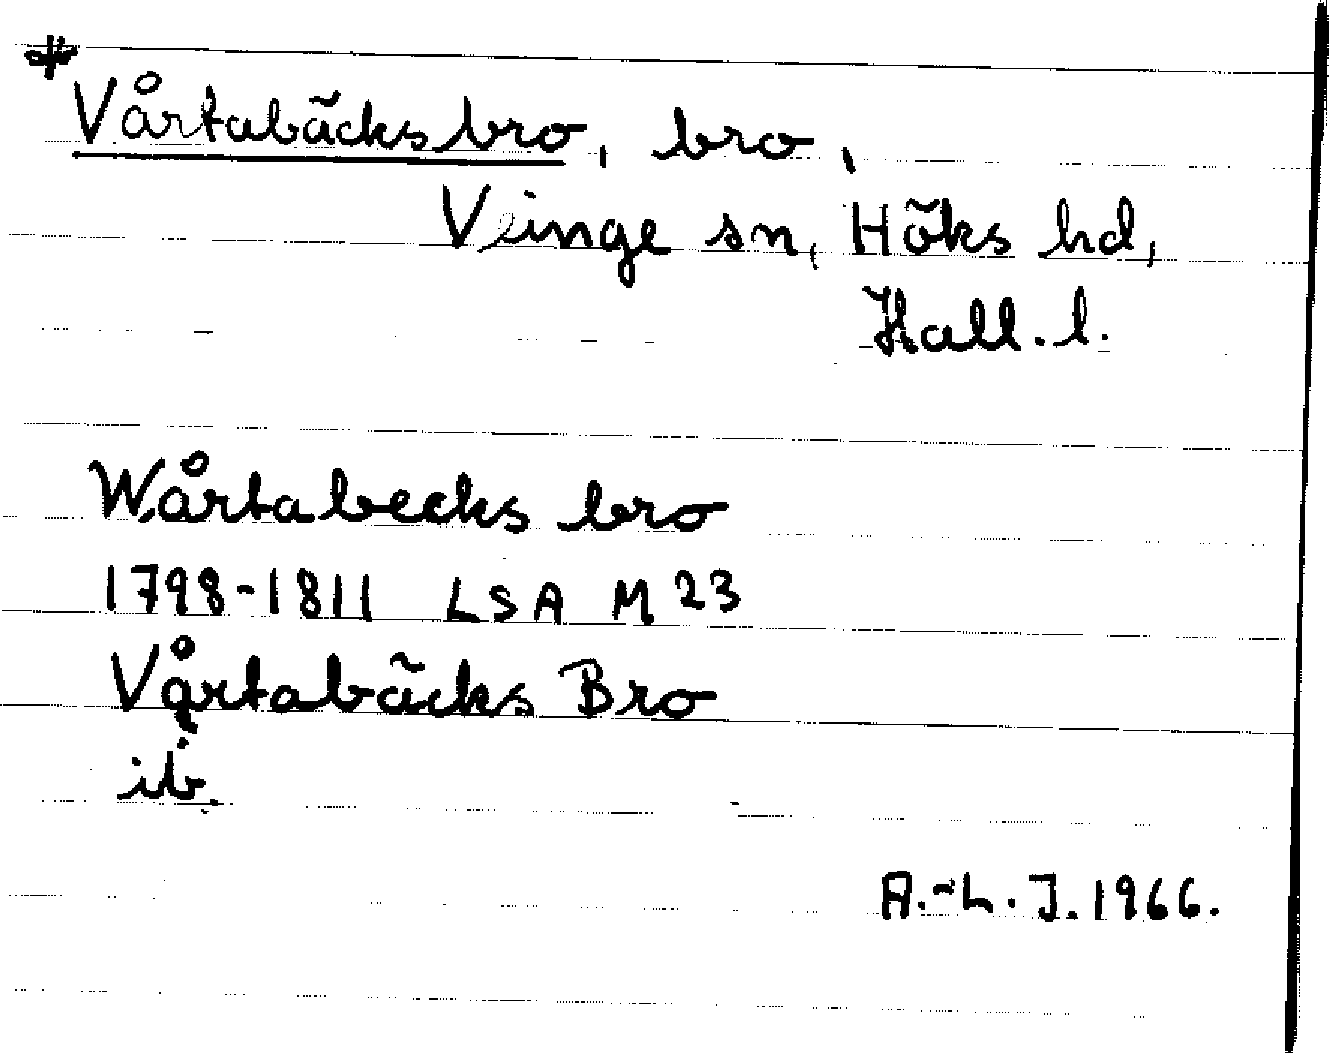 Vårtabäcksbro, bro,
Veinge sn, Höks hd,
Hall. l.
Wårtabecks bro
1798-1811 LSA M 23
Vårtabäcks Bro
ib.
A.-L. J. 1966.